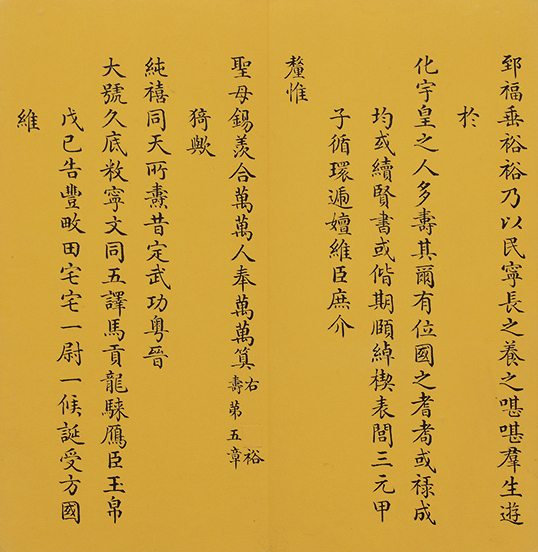 郅福垂裕裕乃以民寧長之養之啿啿羣生遊
於
化宇皇之人多壽其爾有位國之耆耇或祿成
均或續賢書或偕期頤綽楔表閭三元甲
子循環遍嬗維臣庶介
釐惟
聖母錫羨合萬萬人奉萬萬算右裕壽第五章
猗歟
純禧同天所壽昔定武功粵晉
大號久底敉寧文同五譯馬貢龍騋鴈臣王帛
戊己告豐畋田宅宅一尉一候誕受方國
維